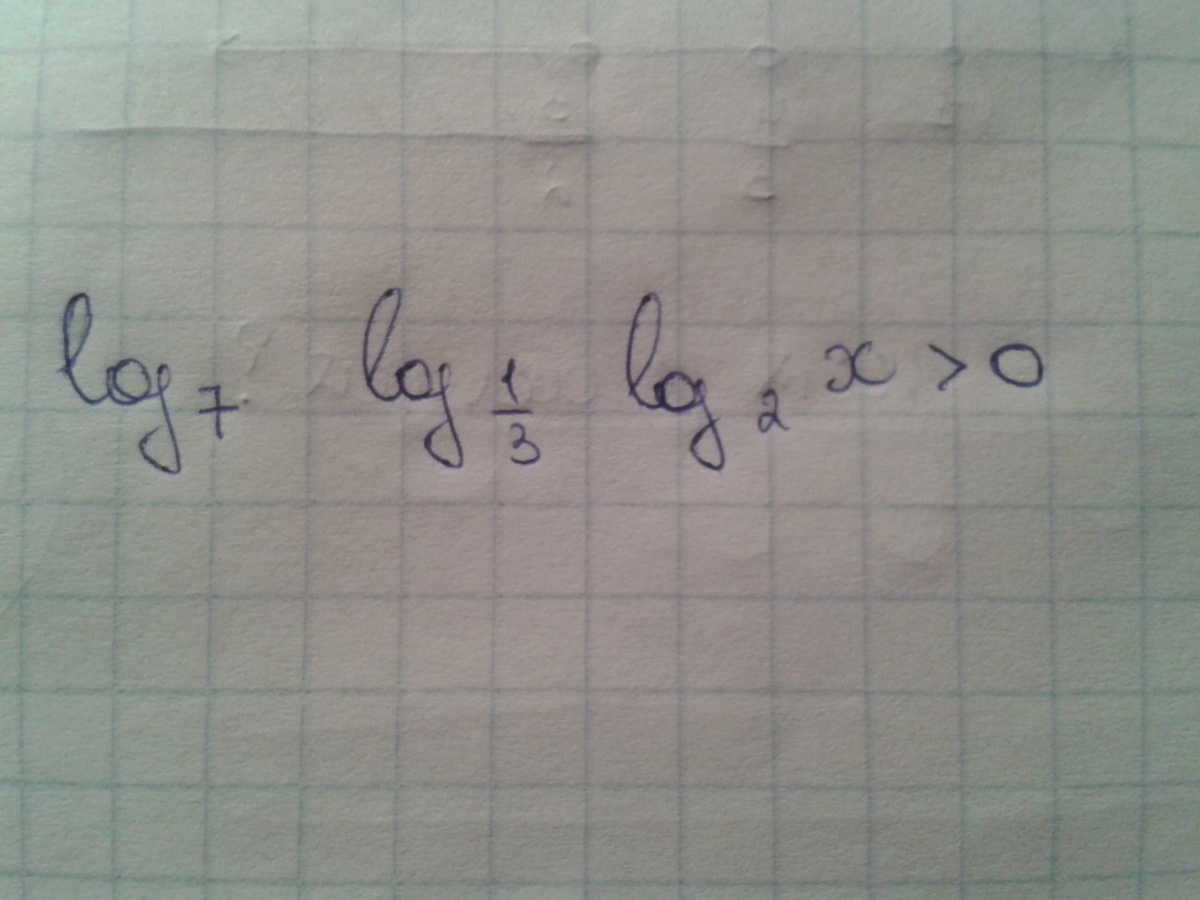 log₇ log_{1/3} log₂ x > 0